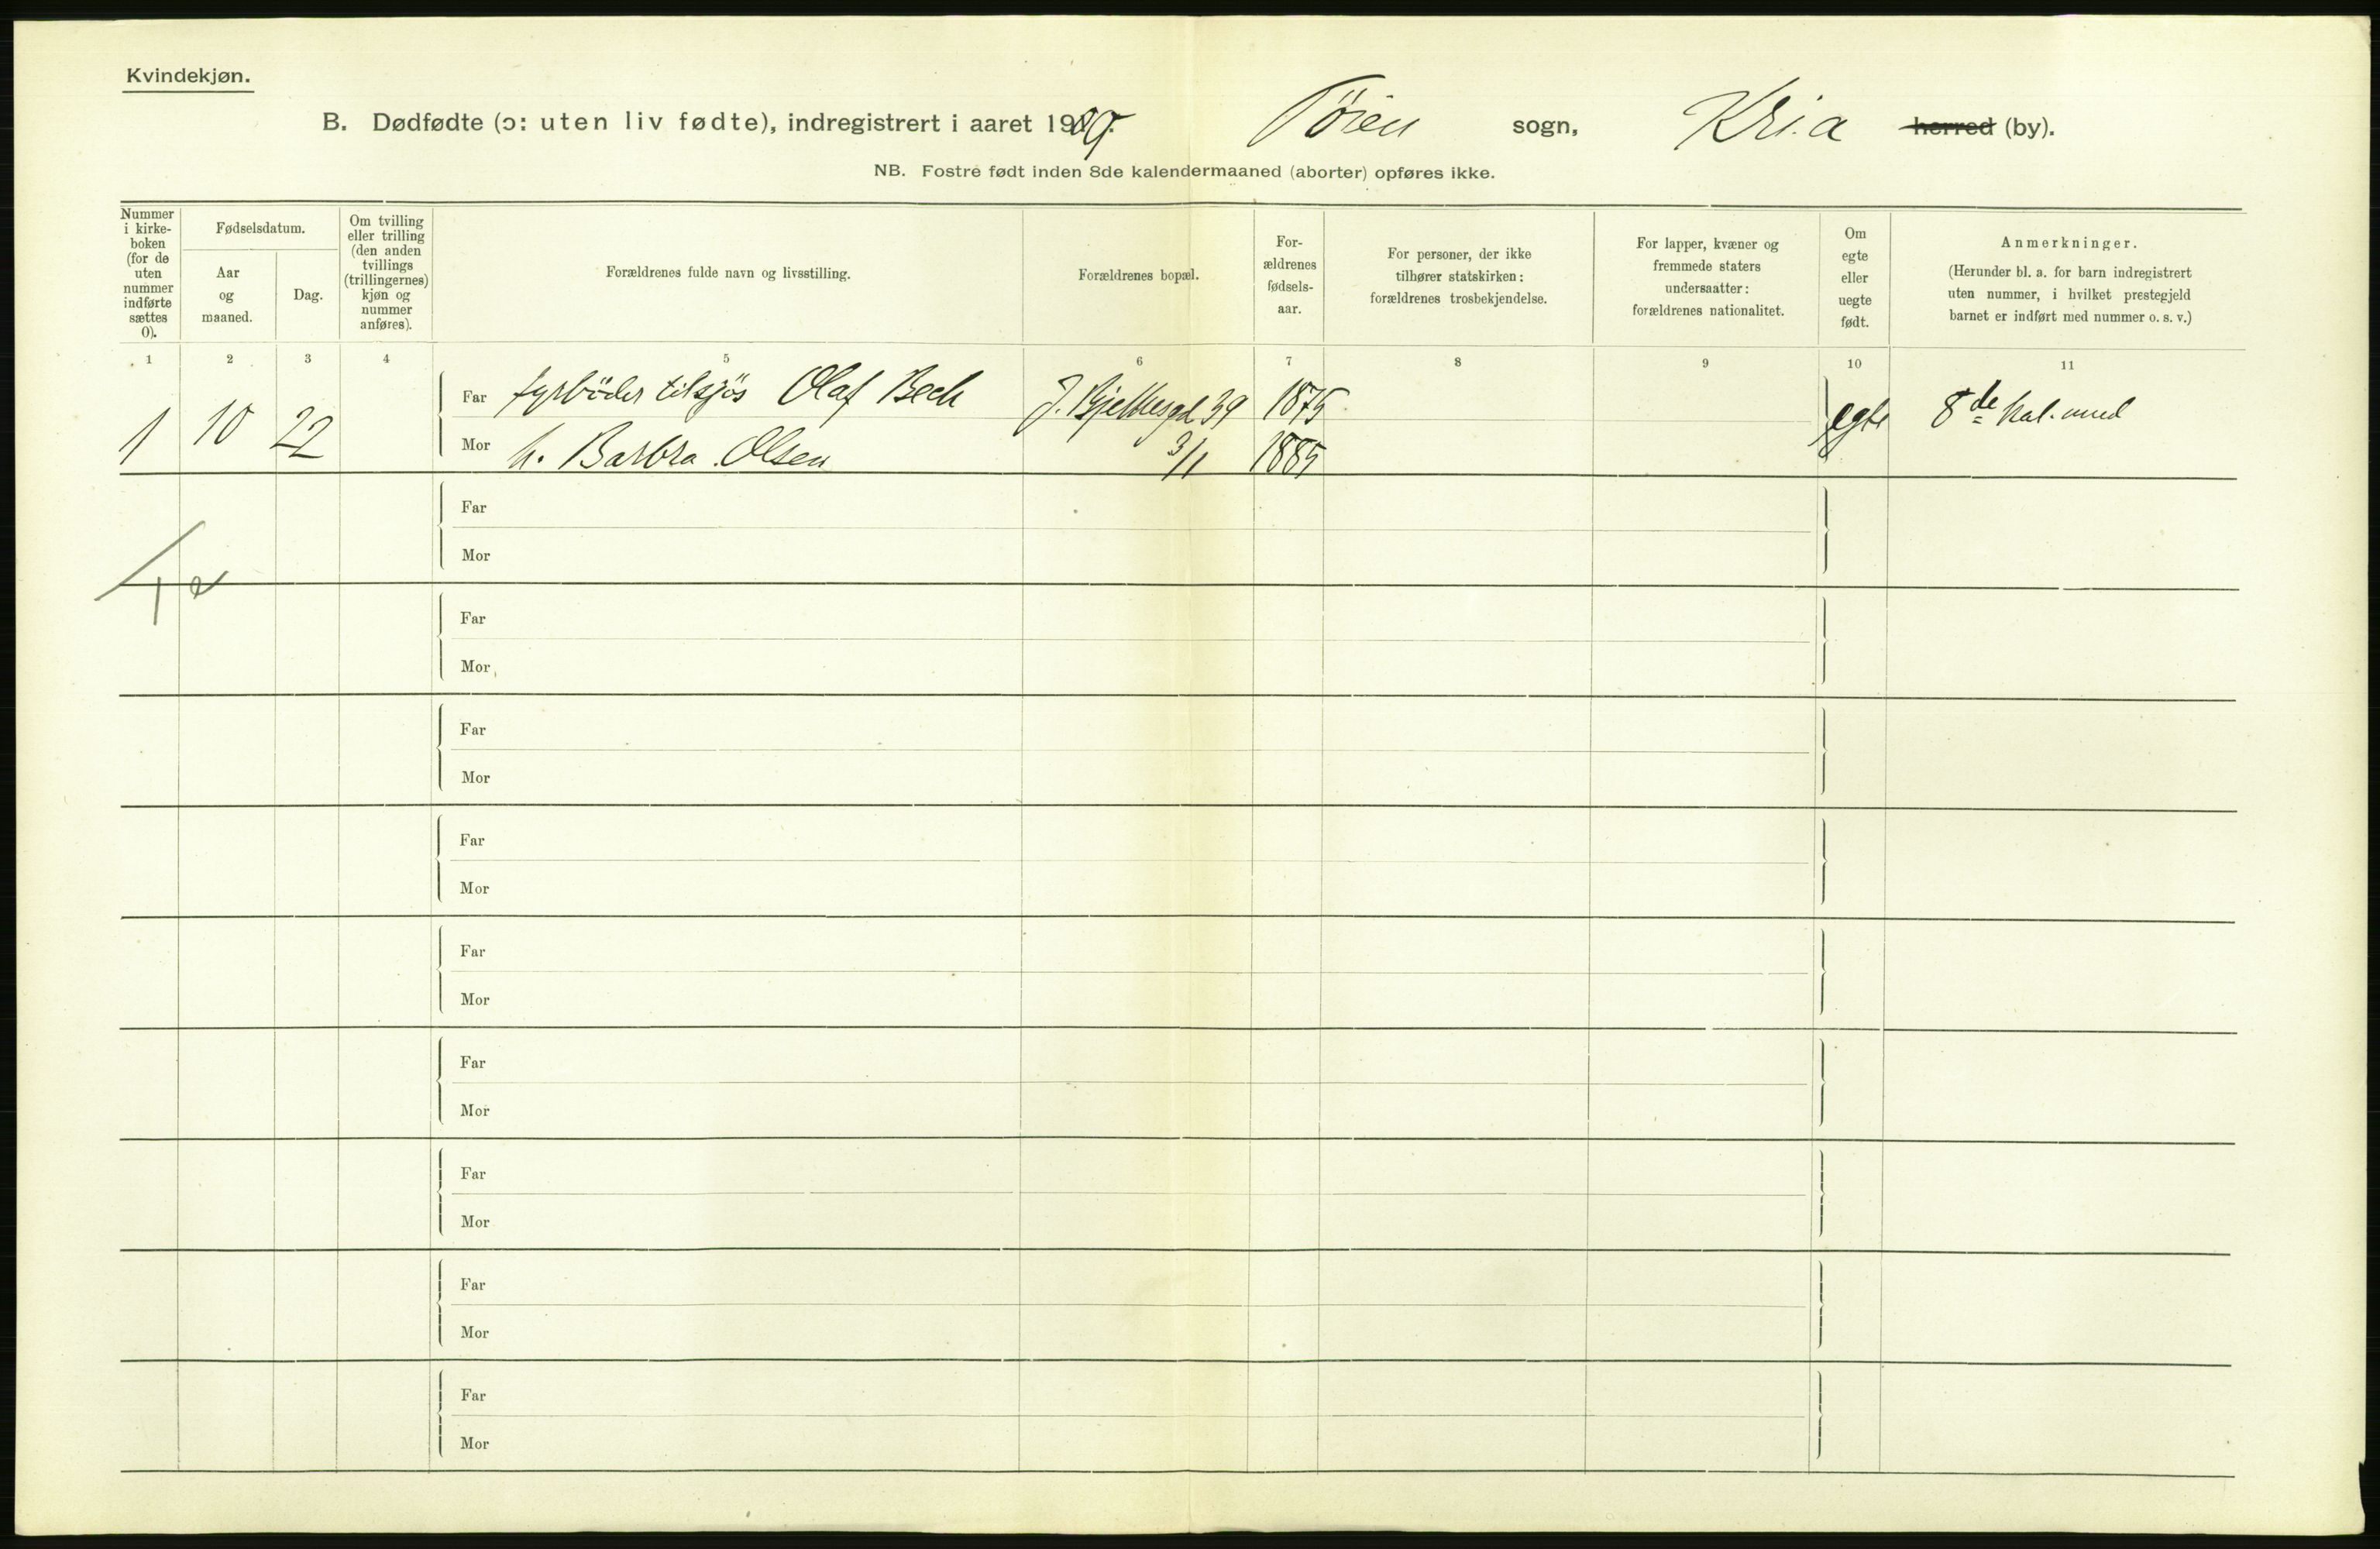 Kvindekjøn.
B. Dødfødte (ɔ: uten liv fødte), indregistrert i aaret 1909. Töien sogn, Kria herred (by).
NB. Fostre født inden 8de kalendermaaned (aborter) opføres ikke.
Nummer i kirke-boken (for de uten nummer indførte sættes 0).
Fødselsdatum.
Aar og maaned.
Dag.
Om tvilling eller trilling (den anden tvillings (trillingernes) kjøn og nummer anføres).
Forældrenes fulde navn og livsstilling.
Forældrenes bopæl.
For-ældrenes fødsels-aar.
For personer, der ikke tilhører statskirken: forældrenes trosbekjendelse.
For lapper, kvæner og fremmede staters undersaatter: forældrenes nationalitet.
Om egte eller uegte født.
Anmerkninger.
(Herunder bl. a. for barn indregistrert uten nummer, i hvilket prestegjeld barnet er indført med nummer o. s. v.)
1 2 3 4 5 6 7 8 9 10 11
Far fyrböder tilsjös Olaf Bech J. Bjelkesgd 39 1875
1 10 22 egte 8de kal. mnd
Mor h. Barbra Olsen 3/1 1885
Far
Mor
Far
Mor
Far
Mor
Far
Mor
Far
Mor
Far
Mor
Far
Mor
Far
Mor
Far
Mor